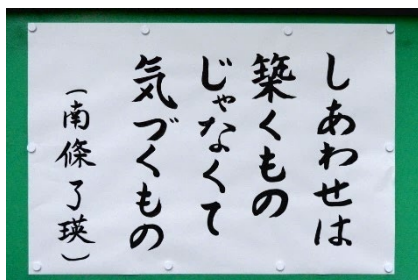 しあわせは
築くもの
じゃなくて
気づくもの
(南條了瑛)